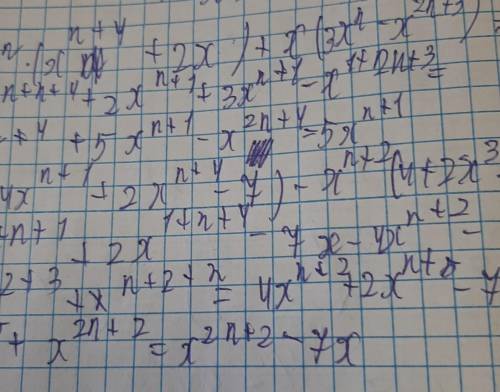 n · (x^{n+4} + 2x) + x (3x^n - x^{2n+3})
n+n+4 + 2x^{n+1} + 3x^{n+1} - x^{1+2n+3} =
+4 + 5x^{n+1} - x^{2n+4} = 5x^{n+1}
4x^{n+1} + 2x^{n+4} - 7) - x^{n+2} (4+2x^3
+n+1 + 2x^{1+n+4} - 7x - 4x^{n+2} -
2+3 + x^{n+2+n} = 4x^{n+2} + 2x^{n+5} - 7
+ x^{2n+2} = x^{2n+2} - 7x